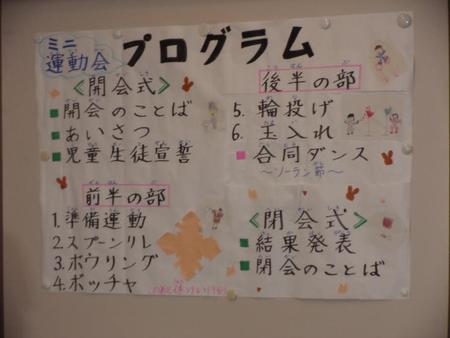 ミニ
運動会
プログラム
≪開会式≫
開会のことば
あいさつ
児童生徒宣誓
前半の部
1.準備運動
2.スプーンリレー
3.ボウリング
4.ボッチャ
後半の部
5.輪投げ
6.玉入れ
合同ダンス
～ソーラン節～
≪閉会式≫
結果発表
閉会のことば